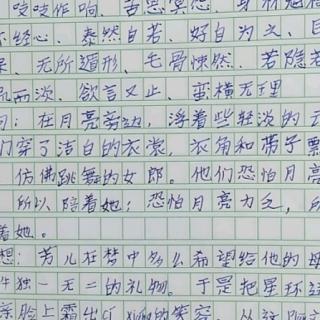 咬咬作响、苦思冥想、身
不经心、泰然自若、好自为之、
无所遁形、毛骨悚然、若隐若
而淡、欲言又止、蛮横无理
：在月亮旁边，浮着些轻淡的云
们穿了洁白的衣裳、衣角和带子飘
仿佛跳舞的女郎。他们恐怕月亮
所以陪着她；恐怕月亮力乏，所
着她。
想：芳儿在梦中多么希望给他的母
件独一无二的礼物。于是把星环
亲脸上露出 的笑容。从这